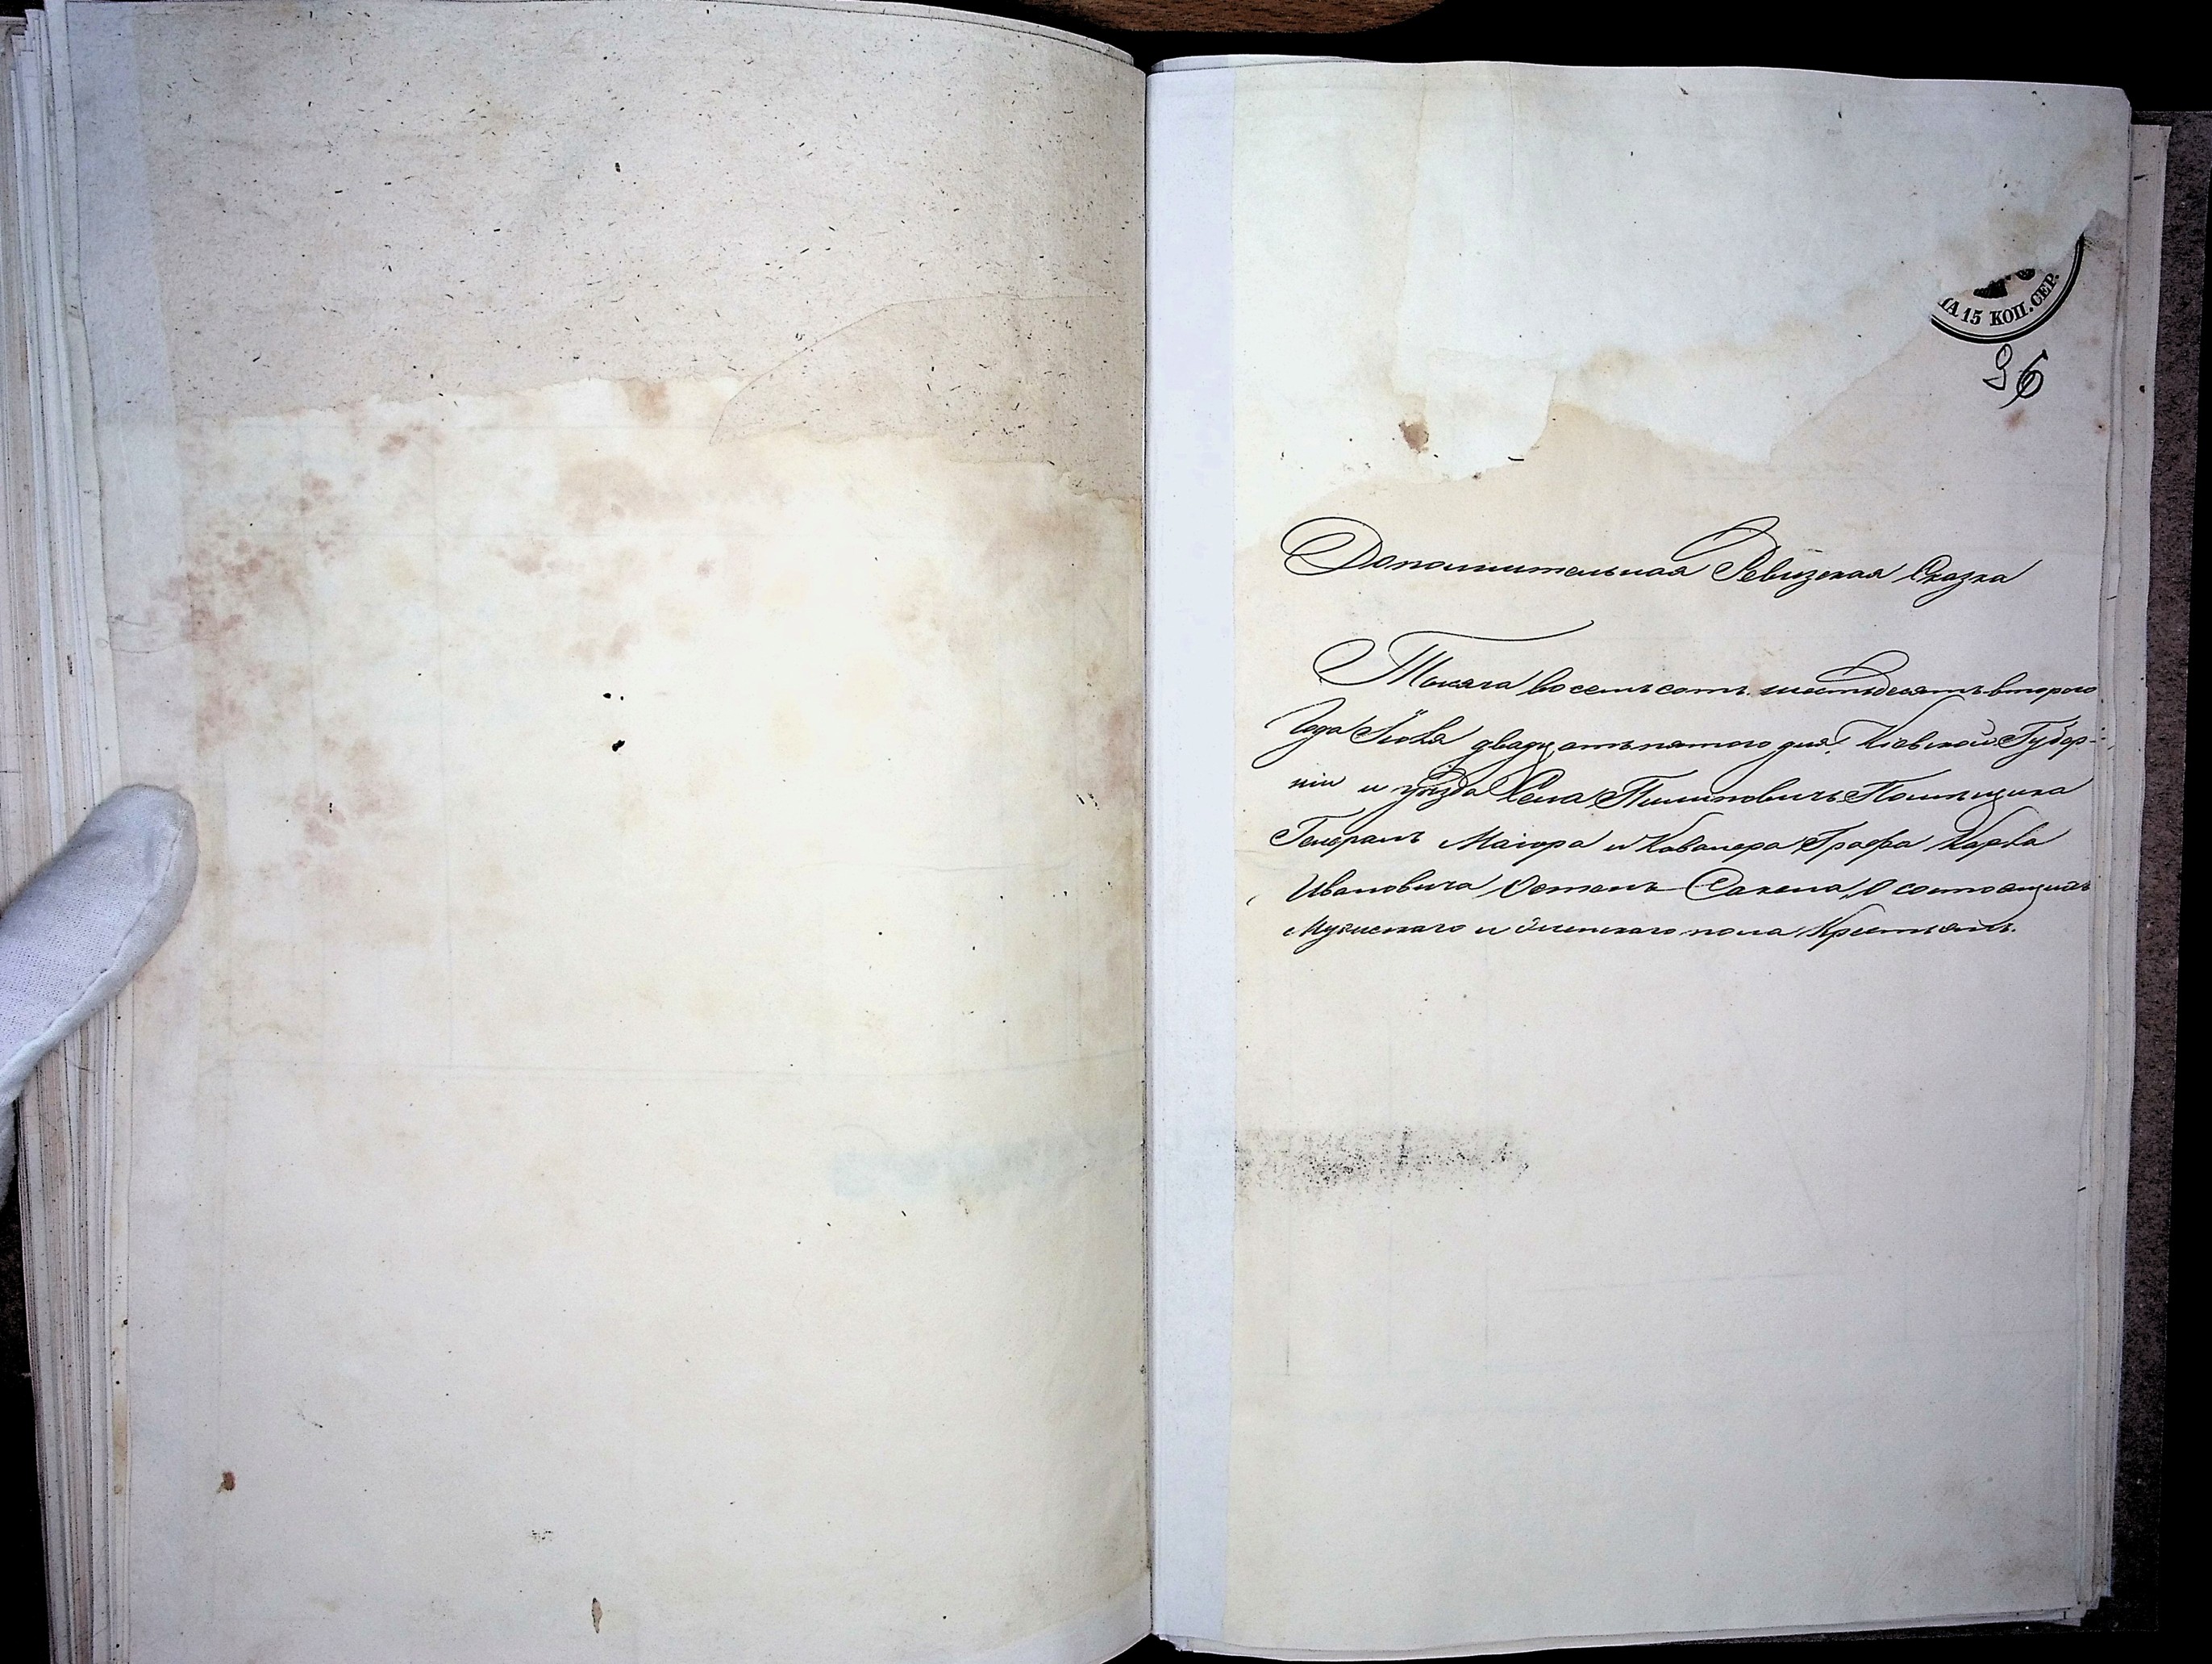 ЦА 15 КОП. СЕР.
96
Дополнительная Ревизская Сказка
Тысяча восемьсотъ шестьдесятъ второго
Года Іюля двадцать пятого дня. Кіевской Губер-
ніи и уѣзда Села Пилиповичъ Помѣщика
Генералъ Маіора и Кавалера Графа Карла
Ивановича Остенъ Сакена, О состоящихъ
Мужескаго и Женскаго пола Крестьянъ.